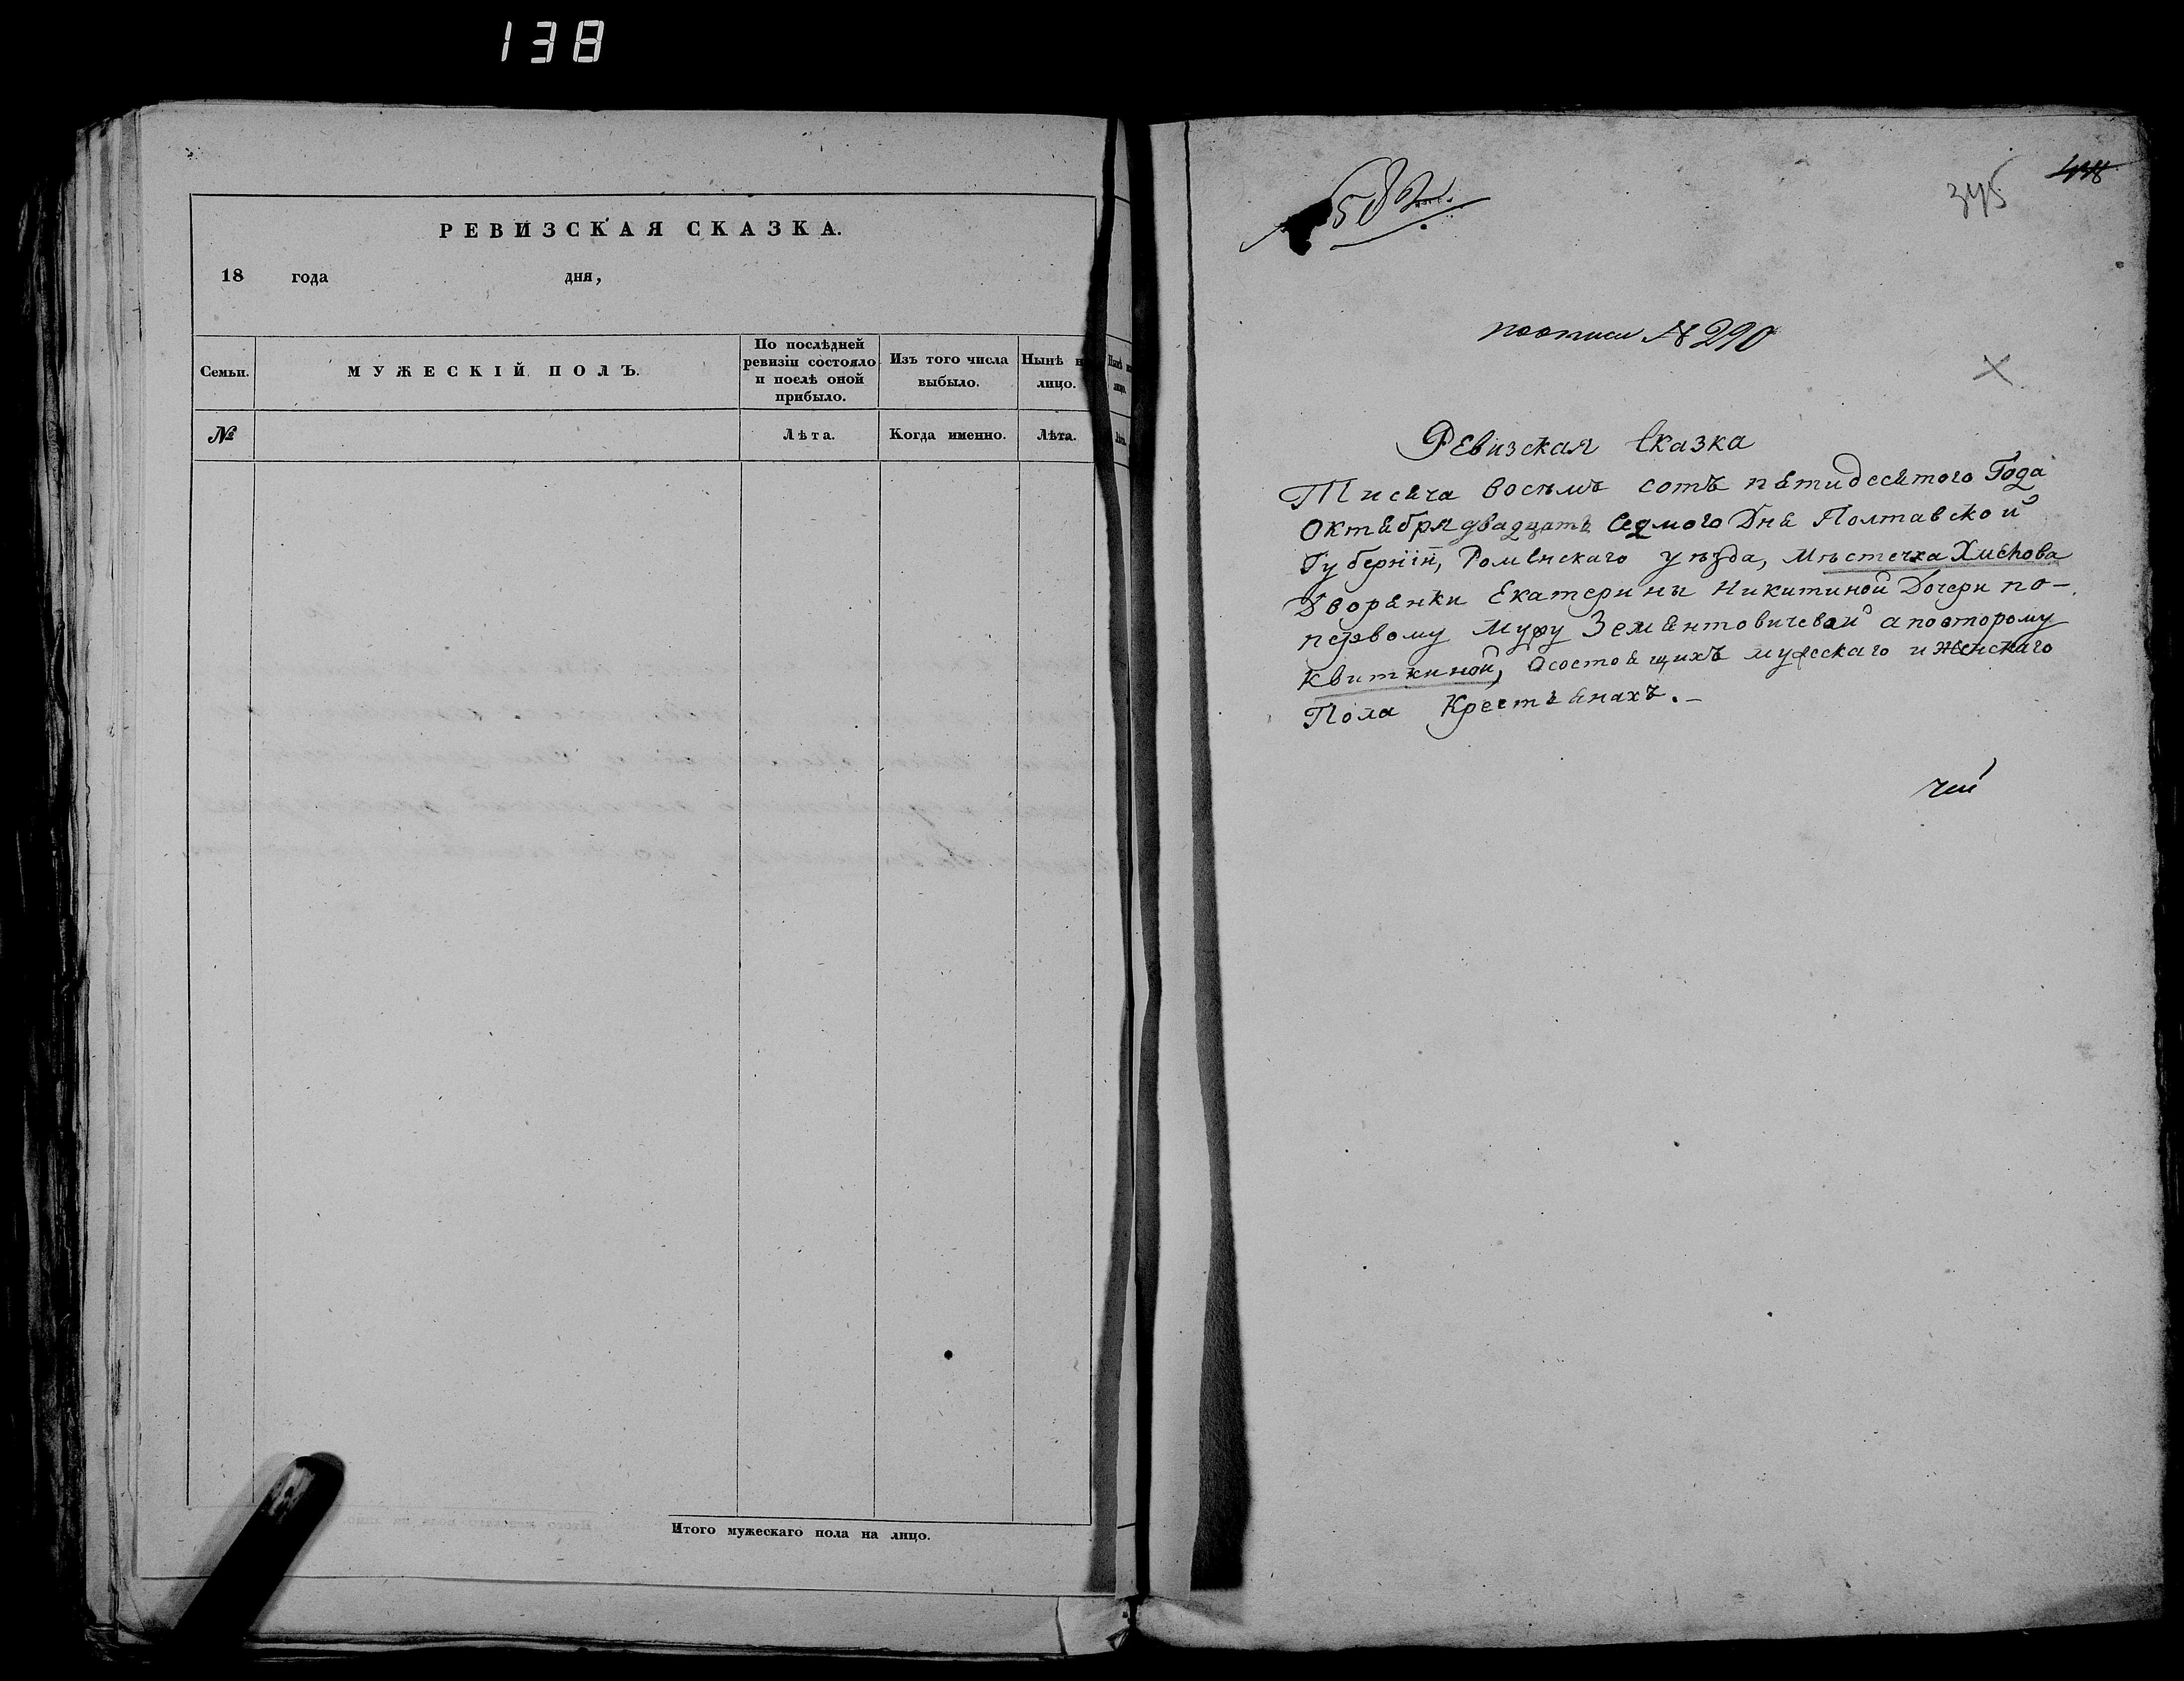 138
РЕВИЗСКАЯ СКАЗКА.
18 года дня,
Семьи.
МУЖЕСКІЙ ПОЛЪ.
По послѣдней
ревизіи состояло
и послѣ оной
прибыло.
Изъ того числа
выбыло.
Нынѣ н
лицо.
№
Лѣта.
Когда именно.
Лѣта.
Итого мужескаго пола на лицо.
345
поописи № 290
Ревизская Сказка
Тисяча восѣмъ сотъ пятидесятого Года
Октября двадцать седмого Дня Полтавской
Губерніи, Роменскаго уѣзда, Мѣстечка Хмѣлова
Дворянки Екатерины Никитиной Дочери по-
первому Мужу Земянтовичевой а повторому
Квиткиной, Осостоящихъ мужескаго и женскаго
Пола Крестьянахъ.-